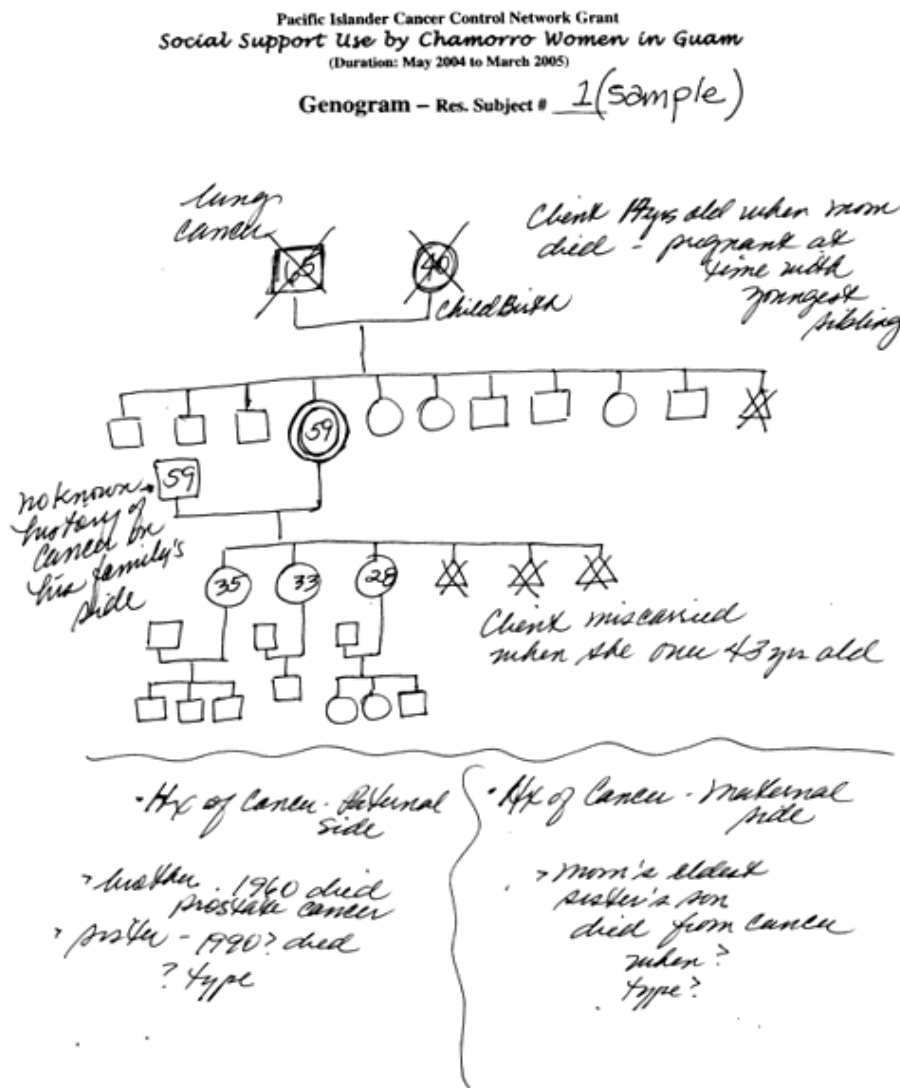 Pacific Islander Cancer Control Network Grant
Social Support Use by Chamorro Women in Guam
(Duration: May 2004 to March 2005)
Genogram – Res. Subject # 1 (sample)
lung
cancer
Client yrs old when mom
died - pregnant at
time with
youngest
sibling
65
40
Child Birth
59
59
no known
history of
cancer on
his family's
side
35
33
28
Client miscarried
when she 43 yrs old
• Hx of Cancer - Paternal
side
• Hx of Cancer - maternal
side
> brother 1960 died
prostate cancer
> sister - 1990? died
? type
> mom's eldest
sister's son
died from cancer
when?
type?